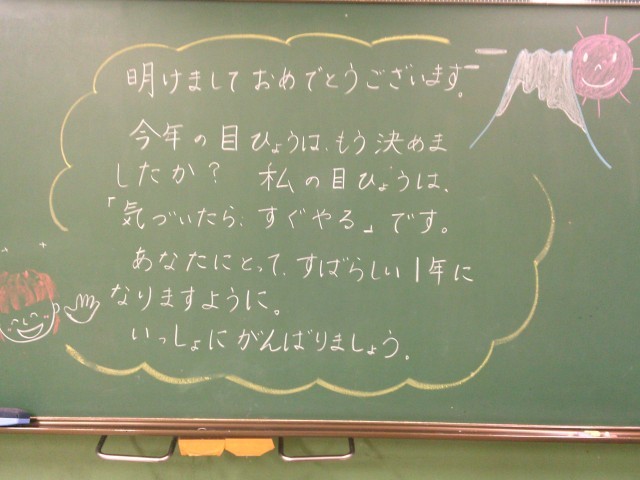 明けましておめでとうございます。
今年の目ひょうは、もう決めま
したか？ 私の目ひょうは、
「気づいたら、すぐやる」です。
あなたにとって、すばらしい1年に
なりますように。
いっしょにがんばりましょう。